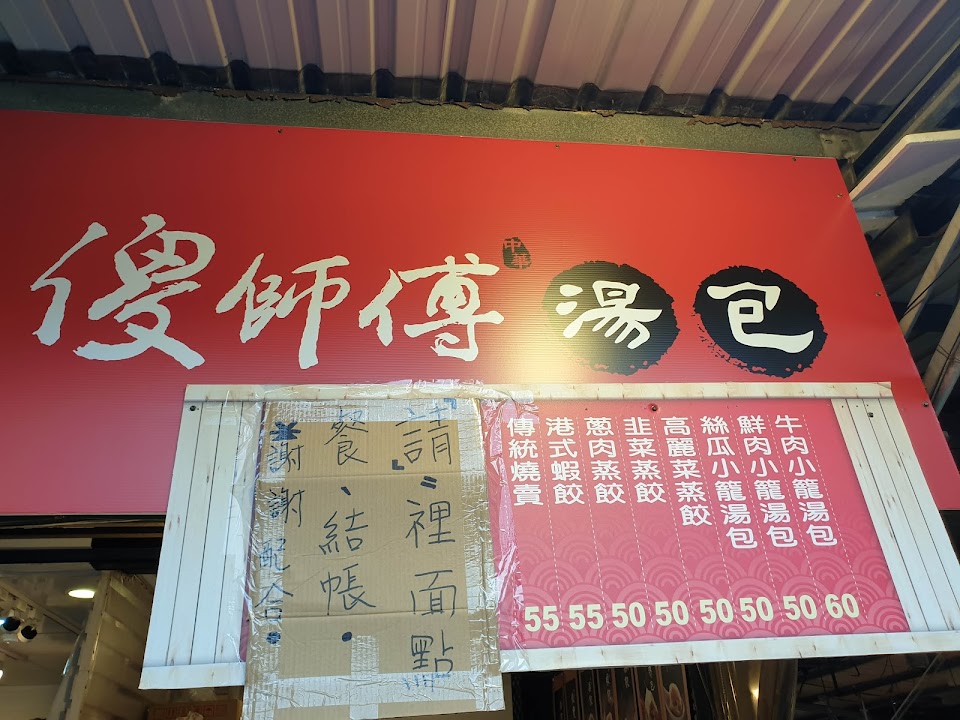 傻師傅
中華
湯包
牛肉小籠湯包 60
鮮肉小籠湯包 50
絲瓜小籠湯包 50
高麗菜蒸餃 50
韭菜蒸餃 50
蔥肉蒸餃 50
港式蝦餃 55
傳統燒賣 55
請"裡面點
餐、結帳。
*謝謝配合。